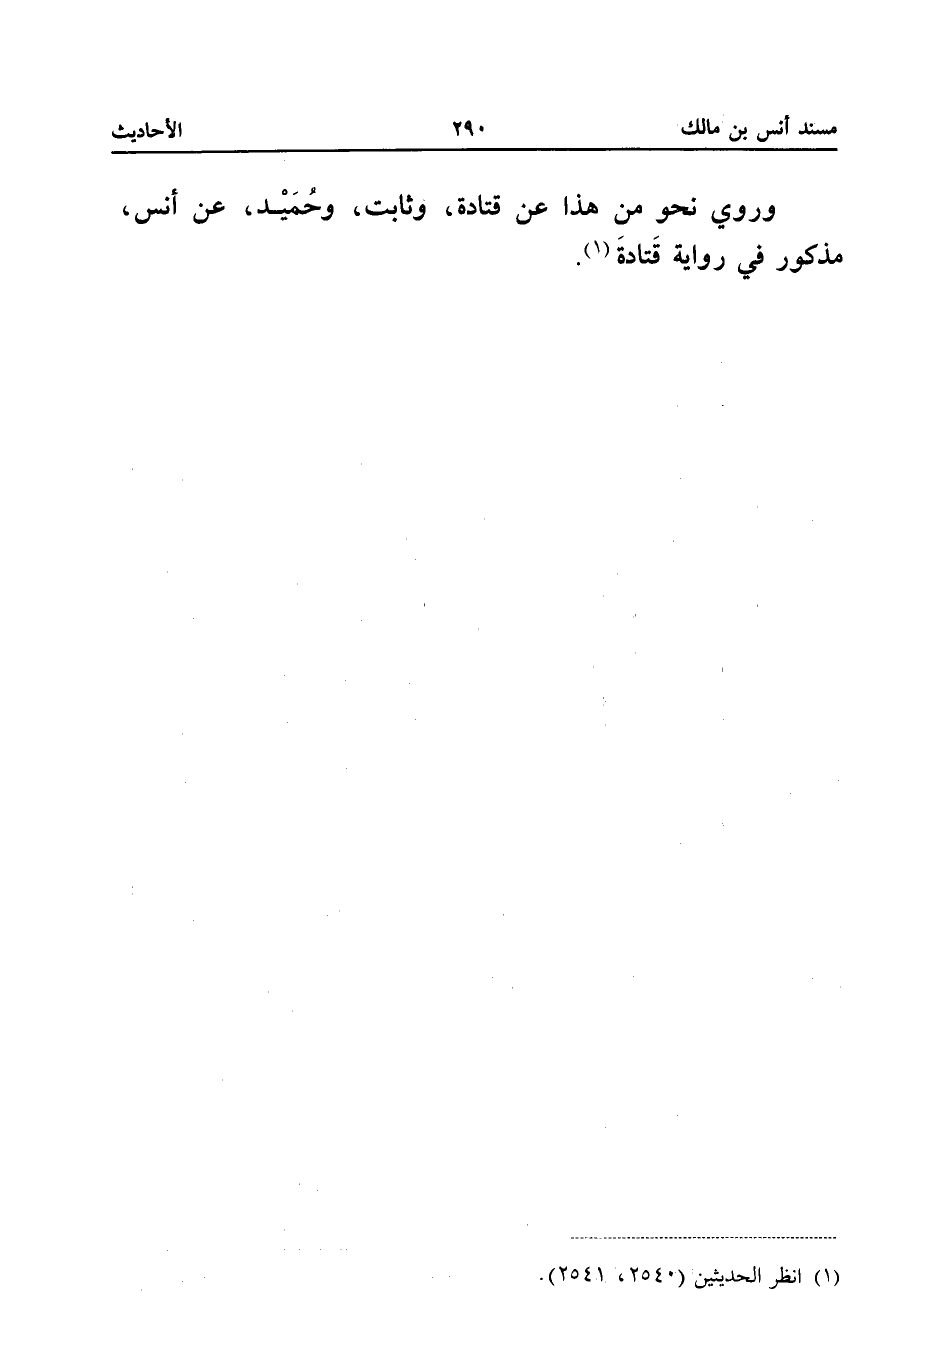 مسند أنس بن مالك ٢٩٠ الأحاديث
وروي نحو من هذا عن قتادة، وثابت، وحُمَيْـد، عن أنس،
مذكور في رواية قَتادةَ (١).
(١) انظر الحديثين (٢٥٤٠، ٢٥٤١).